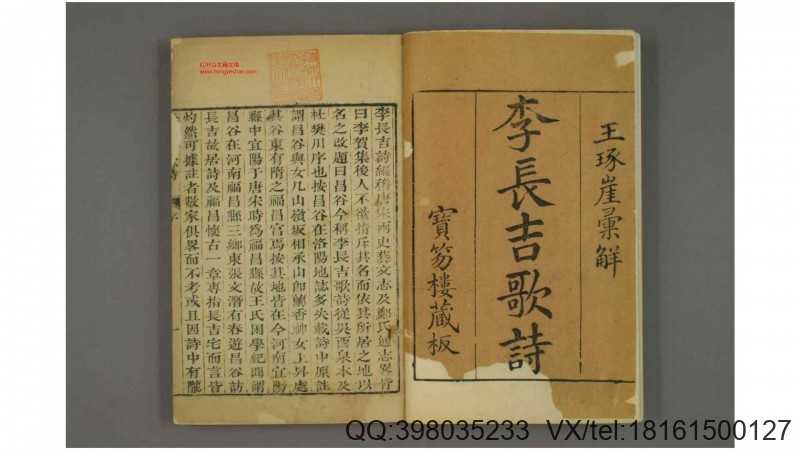 王琢崖彙解
李長吉歌詩
寶笏樓藏板
李長吉詩編稱唐宋兩史藝文志及鄭氏通志畧皆
曰李賀集後人不欲指斥其名而依其所居之地以
名之改題曰昌谷今稱李長吉歌詩從吳西泉本及
杜樊川序也按昌谷在洛陽地誌多失載詩中原註
謂昌谷與女几山嶺坂相承山即蘭香神女上昇處
其谷東有隋之福昌宮焉按其地皆在今河南宜陽
縣中宜陽于唐宋時爲福昌縣故王氏困學紀聞謂
昌谷在河南福昌縣三鄉東張文潛有春遊昌谷訪
長吉故居詩及福昌懷古一章専指長吉宅而言皆
灼然可據註者數家俱畧而不考或且因詩中有隴
一
红叶山古籍文库
www.hongyeshan.com
QQ:398035233 VX/tel:18161500127